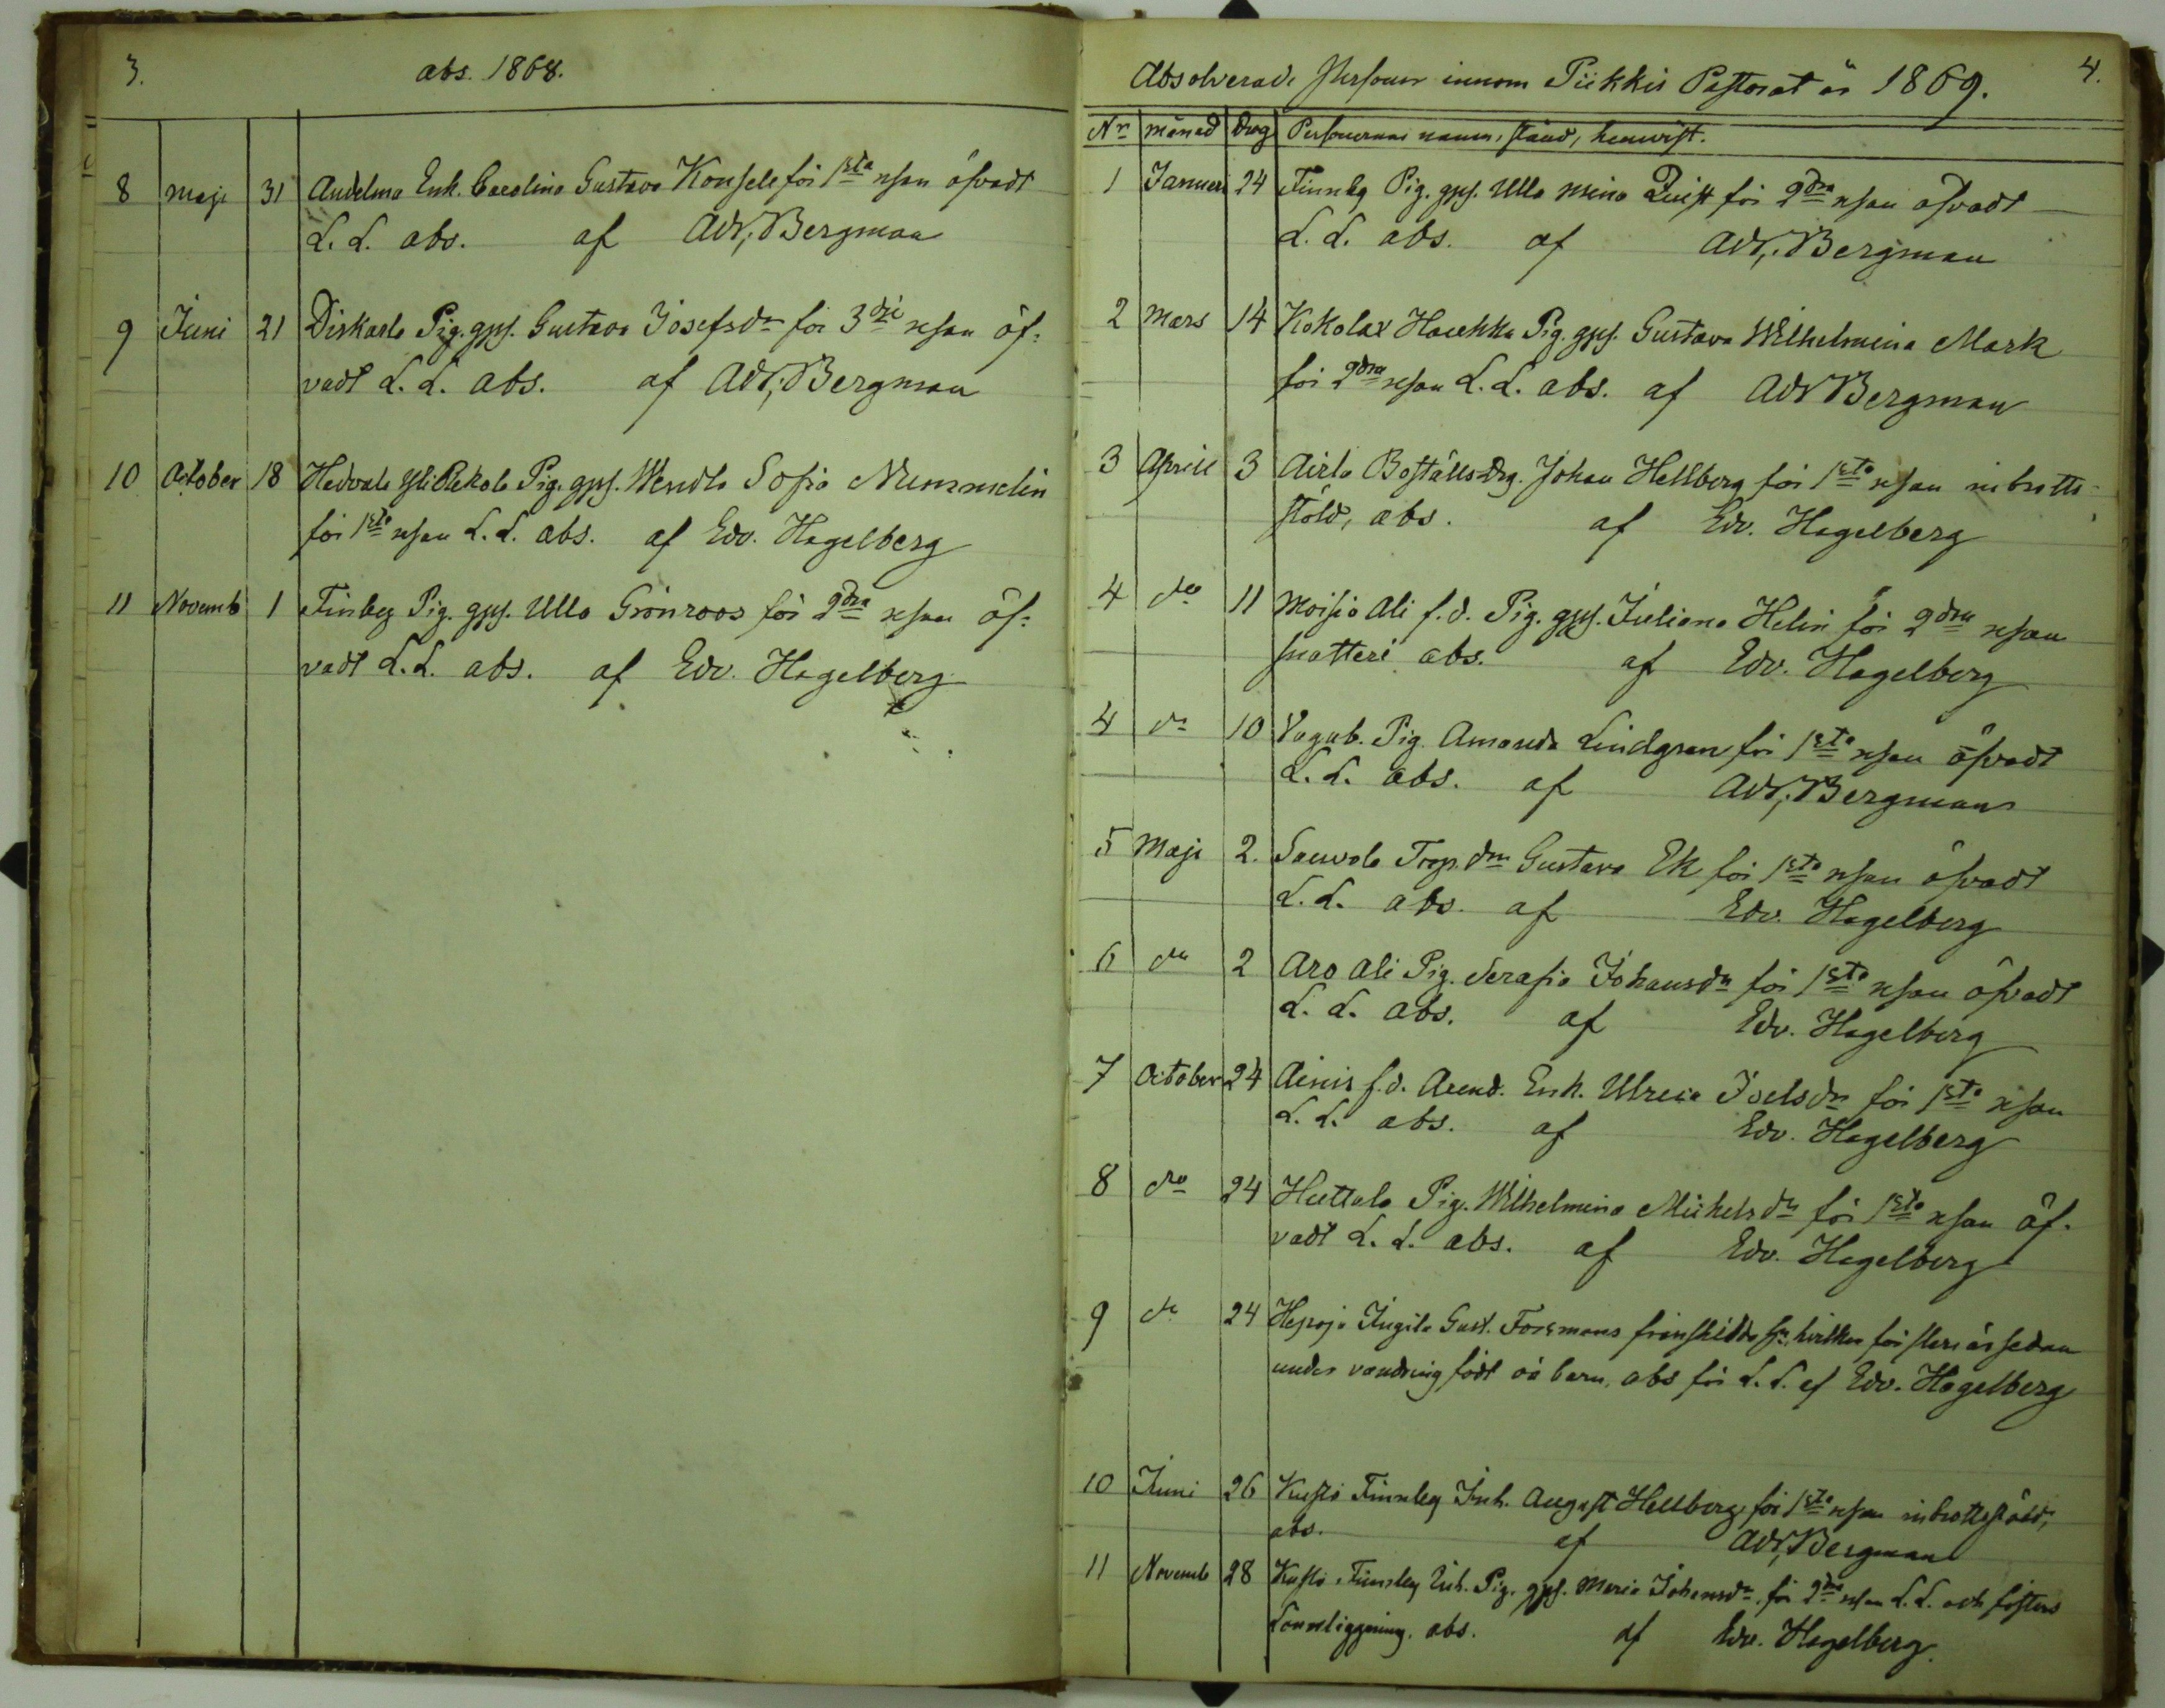 3.
abs. 1868.
8 Maji 31 Andelma Enk. Carolina Gustava Konsele för 1sta resan öfvadt
L. L. abs. af Adr; Bergman
9 Juni 21 Diskarla Pig. gps. Gustava Josefsdr för 3dje resan öf-
vadt L. L. abs. af Adr; Bergman
10 October 18 Hadvala Yli Pekola Pig. gps. Wendla Sofia Nummelin
för 1sta resan L. L. abs. af Edv. Hagelberg
11 Novemb 1 Finbeg Pig. gps. Ulla Grönroos för 2dra resan öf-
vadt L. L. abs. af Edv. Hagelberg
4.
Absolverade Personer innom Piikkis Pastorat år 1869.
Nr månad dag Personernas namn, stånd, hemvist.
1 Januari 24 Finnby Pig. gps. Ulla Mina Quist för 2dra resan öfvadt
L. L. abs. af Adr; Bergman
2 Mars 14 Kokolax Haukka Pig. gps. Gustava Wilhelmina Mark
för 2dra resan L. L. abs. af Adr Bergman
3 Aprill 3 Airla Boställs Drg. Johan Hellberg för 1sta resan inbrotts-
stöld, abs. af Edv. Hagelberg
4 do 11 Moisio Ali f. d. Pig. gps. Juliana Helin för 2dra resan
snatteri abs. af Edv. Hagelberg
4 do 10 Vagab. Pig. Amanda Lindgren för 1sta resan öfvadt
L. L. abs. af Adr; Bergman
5 Maji 2. Sauvala Torp. dr Gustava Ek för 1sta resan öfvadt
L. L. abs. af Edv. Hagelberg
6 do 2 Aro Ali Pig. Serafia Johansdr för 1sta resan öfvadt
L. L. abs. af Edv. Hagelberg
7 October 24 Ainis f. d. Arend. Enk. Ulrica Joelsdr för 1sta resan
L. L. abs. af Edv. Hagelberg
8 do 24 Huttala Pig. Wilhelmina Michelsdr för 1sta resan öf-
vadt L. L. abs. af Edv. Hagelberg
9 do 24 Hepoja Jngila Gust. Forsmans frånskilda hu. hvilken för flere år sedan
under vandring födt oä barn, abs för L. L. af Edv. Hagelberg
10 Juni 26 Kustö Finnbey Inh. August Hellberg för 1sta resan inbrottsstöld,
abs. af Adr; Bergman
11 Novemb 28 Kustö Finnbey Inh. Pig. gps. Maria Johansdr. för 2dra resan L. L. och fosters
Lönnläggning. abs. af Edv. Hagelberg.